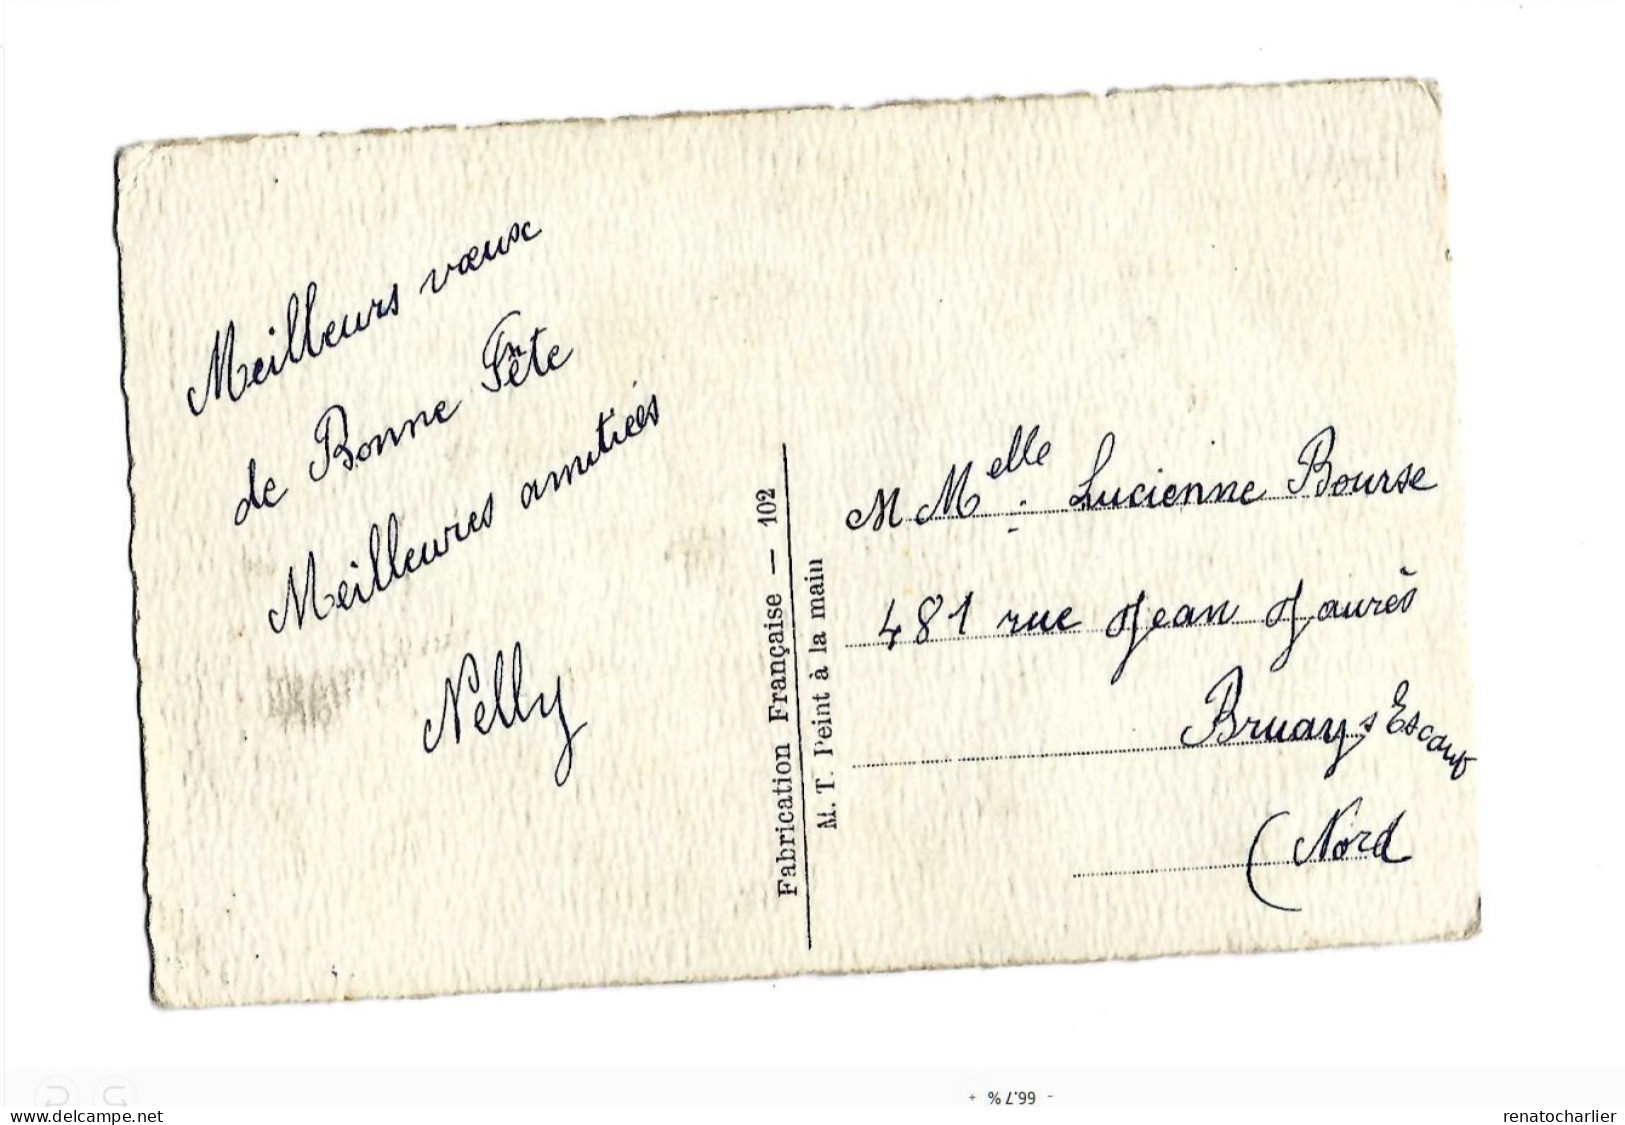 Meilleurs vœux
de Bonne Fête
Meilleures amitiés
Nelly
Fabrication Française — 102
M. T. Peint à la main
M Melle Lucienne Bourse
481 rue Jean Jaurès
Bruay s Escaut
(Nord
- 66.7% +
www.delcampe.net
renatocharlier